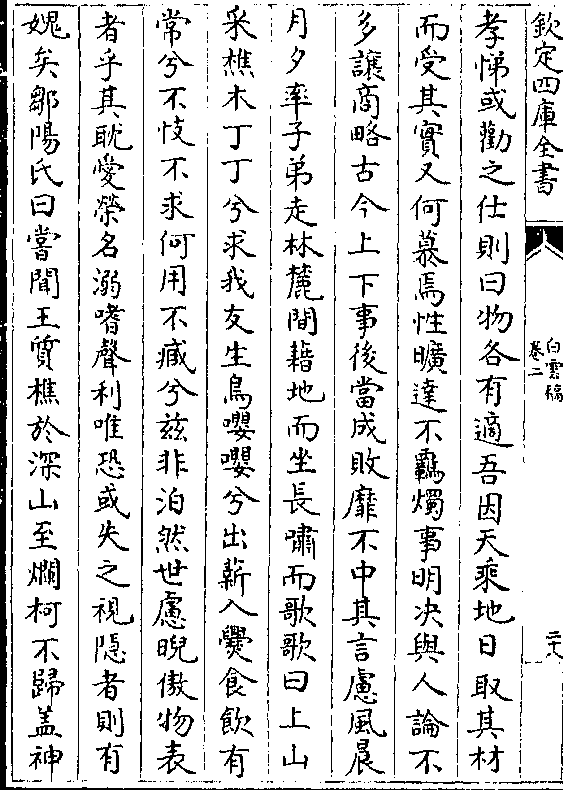 欽定四庫全書
白雲稿
卷二
二十八
孝悌或勸之仕則曰物各有適吾因天乘地日取其材
而受其實又何慕焉性曠達不羈燭事明决與人論不
多讓商略古今上下事後當成敗靡不中其言慮風晨
月夕率子弟走林麓間藉地而坐長嘯而歌歌曰上山
采樵木丁丁兮求我友生鳥嚶嚶兮出薪入爨食飲有
常兮不忮不求何用不臧兮兹非泊然世慮睨傲物表
者乎其耽愛榮名溺嗜聲利唯恐或失之視隠者則有
媿矣鄒陽氏曰嘗聞王質樵於深山至爛柯不歸盖神